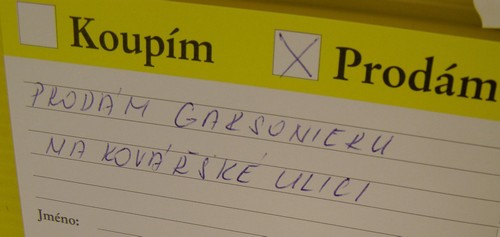 Koupím
Prodám
PRODÁM GARSONIERU
NA KOVÁŘSKÉ ULICI
Jméno: